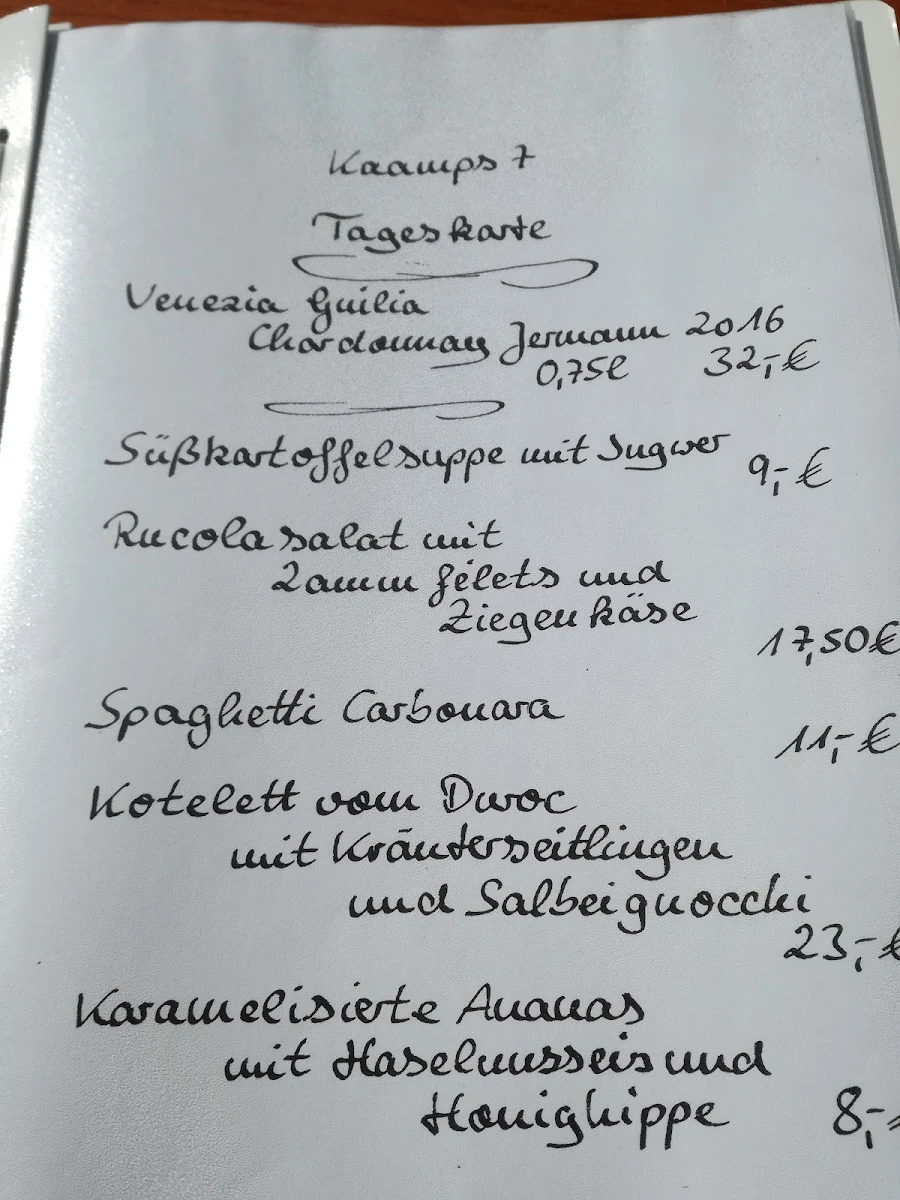 Kaamps 7
Tageskarte
Venezia Guilia
Chardonnay Jermann 2016
0,75l 32,-€
Süßkartoffelsuppe mit Ingwer 9,-€
Rucolasalat mit
Lammfilets und
Ziegenkäse
17,50€
Spaghetti Carbonara
11,-€
Kotelett vom Duroc
mit Kräuterseitlingen
und Salbeignocchi
23,-€
Karamelisierte Ananas
mit Haselnusseis und
Honighippe 8,-